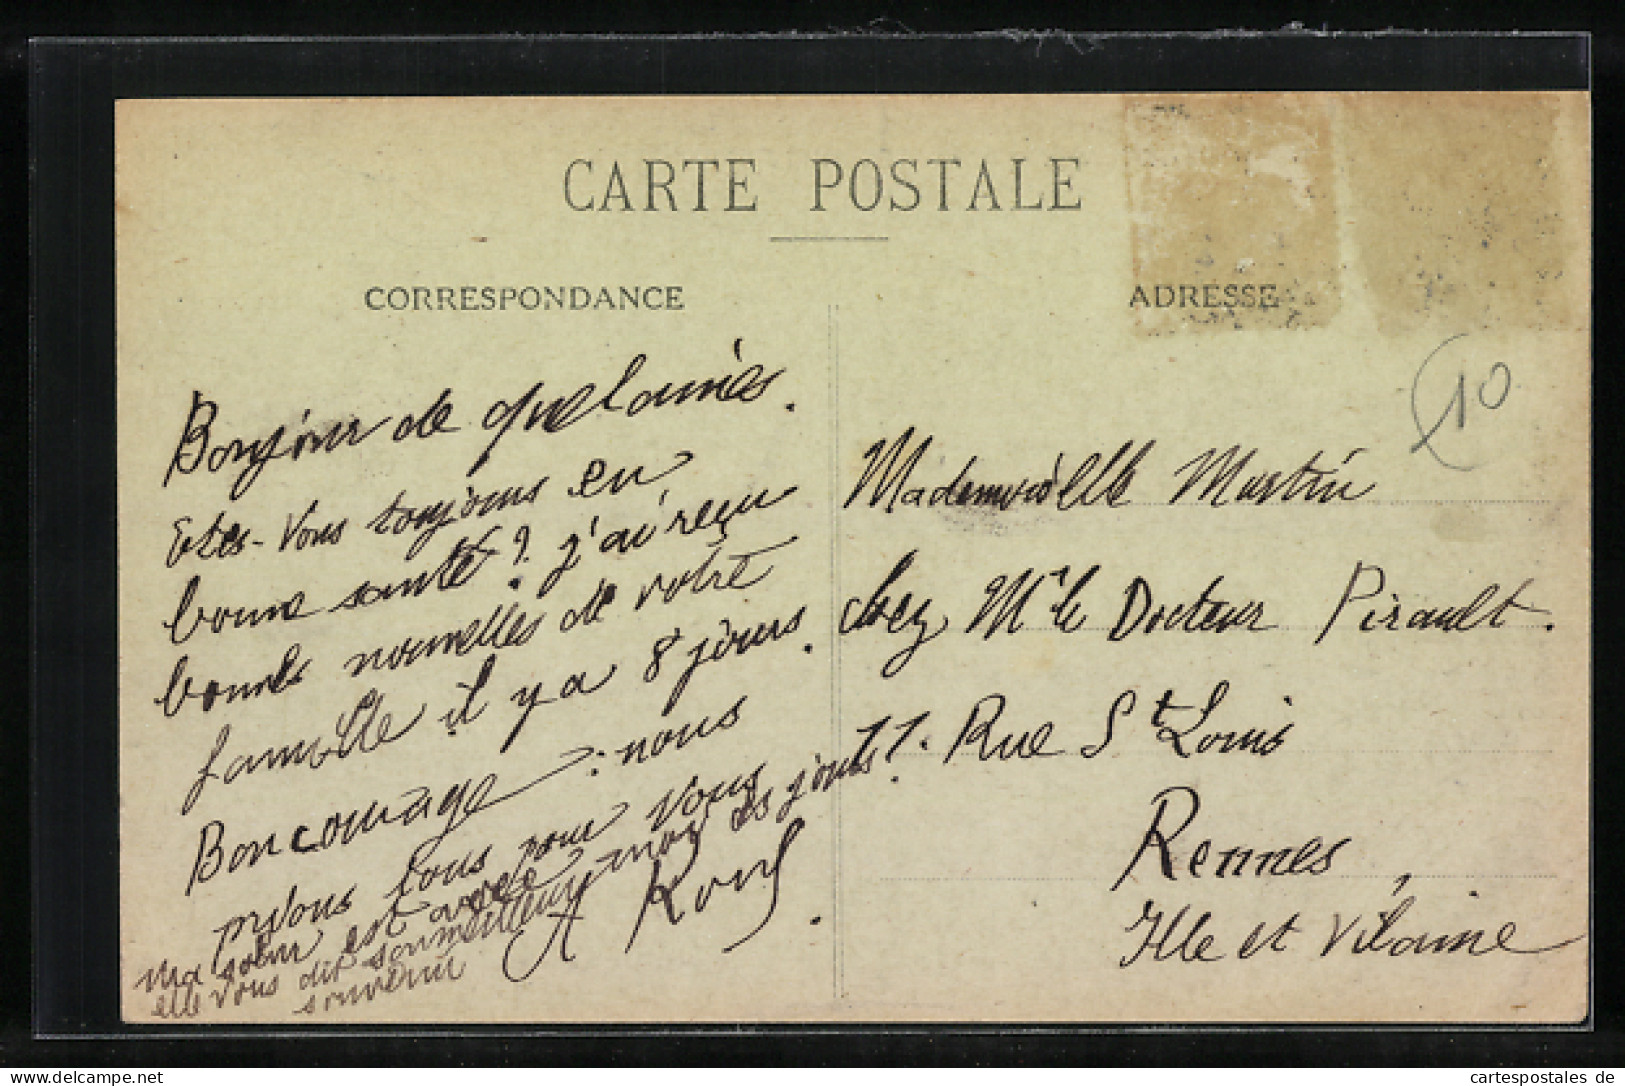 CARTE POSTALE
CORRESPONDANCE
ADRESSE
10
Bonjour de Quelaines.
Etes-Vous toujours en
bonne santé? j'ai reçu
bonnes nouvelles de votre
famille il y a 8 jours.
Bon courage: nous
prions tous pour Vous
Ma sœur est avec moi ces jours
elle vous dit son meilleur
souvenir
A
Mademoiselle Martin
chez Mr le Docteur Pirault.
Rue St Louis
Rennes,
Ille et Vilaine
www.cartespostales.de
cartespostales de